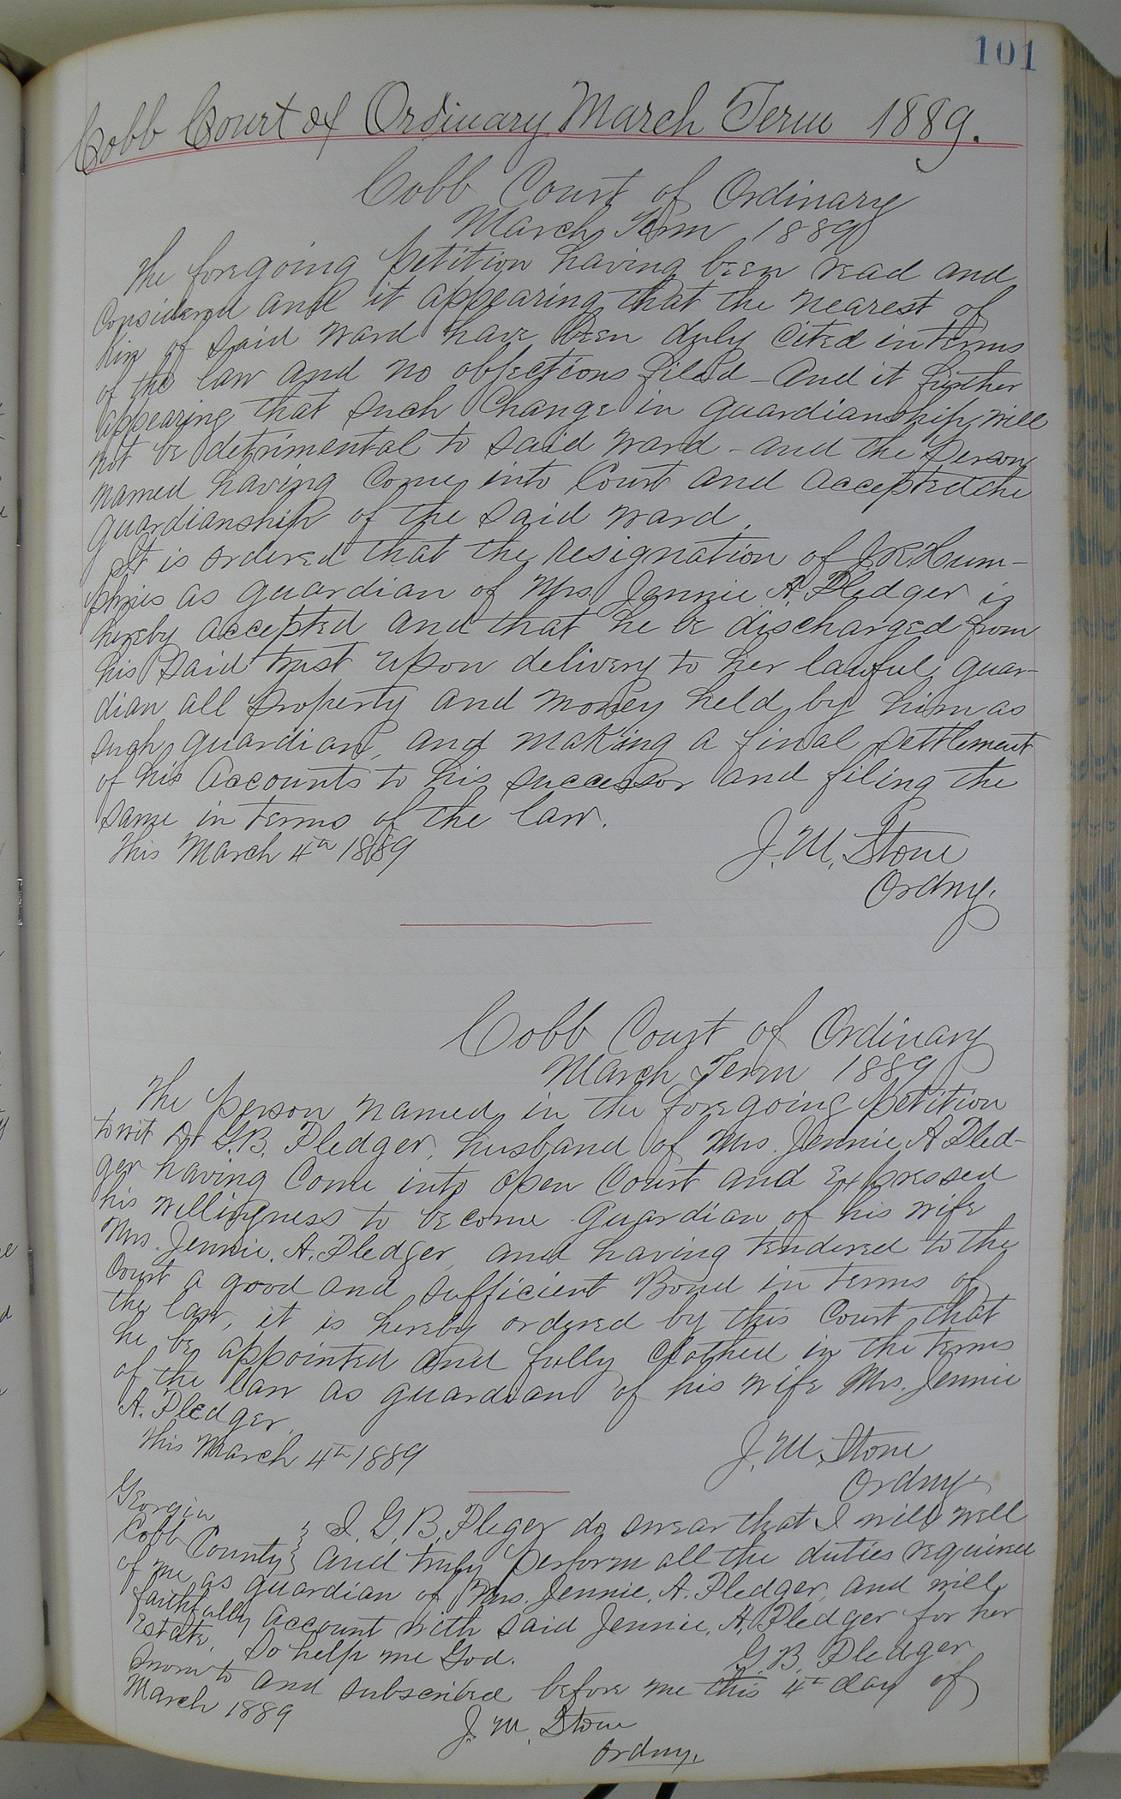 101
Cobb Court of Ordinary March Term 1889.
Cobb Court of Ordinary
March Term 1889
The foregoing petition having been read and
Considered and it appearing that the nearest of
kin of said ward have been duly cited in terms
of the law and no objections filed - And it further
appearing that such Change in guardianship will
not be detrimental to said ward - and the person
named having Come into Court and accepted the
guardianship of the said ward.
It is ordered that the resignation of J.R. Hum-
phries as guardian of Mrs. Jennie A. Pledger is
hereby accepted and that he be discharged from
his said trust upon delivery to her lawful guar-
dian all property and money held by him as
such guardian, and making a final settlement
of his Accounts to his successor and filing the
same in terms of the law.
This March 4th 1889
J. M. Stone
Ordny.
Cobb Court of Ordinary
March Term 1889
The person named in the foregoing petition
to wit Dr G.B. Pledger, husband of Mrs. Jennie A Pled-
ger having Come into open Court and expressed
his willingness to become guardian of his wife
Mrs. Jennie. A. Pledger, and having tendered to the
Court a good and sufficient Bond in terms of
the law, it is hereby ordered by this Court that
he be appointed and fully clothed in the terms
of the law as guardian of his wife Mrs. Jennie
A. Pledger.
This March 4th 1889
J. M. Stone
Ordny
Georgia
Cobb County } I, G. B. Pleger do swear that I will well
and truly perform all the duties required
of me as guardian of Mrs. Jennie. A. Pledger, and will
faithfully account with said Jennie. A. Pledger for her
Estate. So help me God.
G. B. Pledger
Sworn to and subscribed before me this 4th day of
March 1889
J. M. Stone
Ordny.